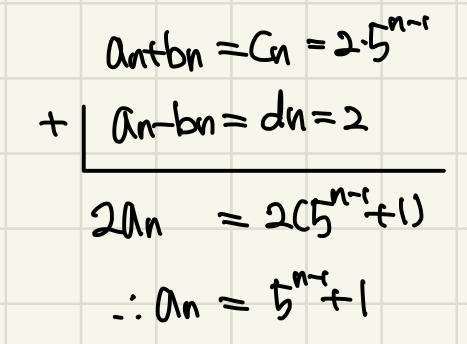 aₙ+bₙ = Cₙ = 2·5ⁿ⁻¹
+ | aₙ-bₙ = dₙ = 2
2aₙ = 2(5ⁿ⁻¹+1)
∴ aₙ = 5ⁿ⁻¹+1